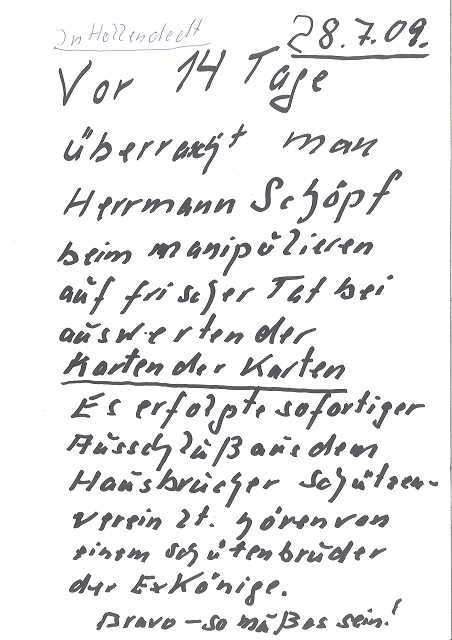 In Hollenstedt
28.7.09.
Vor 14 Tage
überrascht man
Herrmann Schöpf
beim manipulieren
auf frischer Tat bei
auswerten der
Karten der Karten
Es erfolgte sofortiger
Ausschluß aus dem
Hausbrucher Schützen-
verein lt. hören von
einem schützenbruder
der ExKönige.
Bravo - so muß es sein!